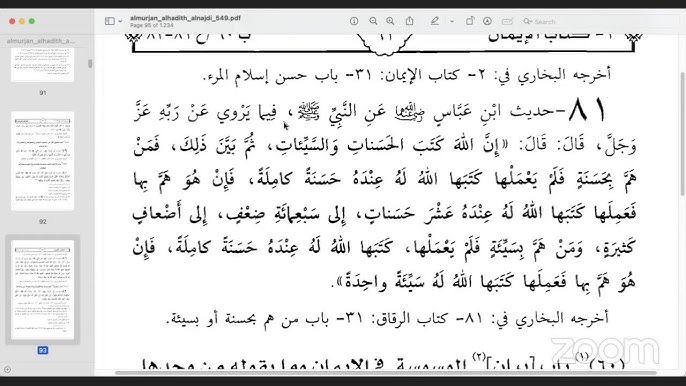 almurjan_alhadith_alnajdi_549.pdf
Page 95 of 1.234
almurjan_alhadith_a...
91
92
93
أخرجه البخاري في: ٢- كتاب الإيمان: ٣١- باب حسن إسلام المرء.
٨١-حديث ابْنِ عَبَّاسٍ رضي الله عنهما عَنِ النَّبِيِّ ﷺ، فِيما يَرْوِي عَنْ رَبِّهِ عَزَّ
وَجَلَّ، قَالَ: قَالَ: «إِنَّ اللهَ كَتَبَ الحَسَناتِ وَالسَّيِّئاتِ، ثُمَّ بَيَّنَ ذَلِكَ، فَمَنْ
هَمَّ بِحَسَنَةٍ فَلَمْ يَعْمَلْها كَتَبَها اللهُ لَهُ عِنْدَهُ حَسَنَةً كامِلَةً، فَإِنْ هُوَ هَمَّ بِها
فَعَمِلَها كَتَبَها اللهُ لَهُ عِنْدَهُ عَشْرَ حَسَناتٍ، إِلى سَبْعِمائَةِ ضِعْفٍ، إِلى أَضْعافٍ
كَثِيرَةٍ، وَمَنْ هَمَّ بِسَيِّئَةٍ فَلَمْ يَعْمَلْها، كَتَبَها اللهُ لَهُ عِنْدَهُ حَسَنَةً كامِلَةً، فَإِنْ
هُوَ هَمَّ بِها فَعَمِلَها كَتَبَها اللهُ لَهُ سَيِّئَةً واحِدَةً».
أخرجه البخاري في: ٨١- كتاب الرقاق: ٣١- باب من هم بحسنة أو بسيئة.
(٦٠)(١) باب [بيان](٢) الوسوسة في الإيمان وما يقوله من وجدها
zoom